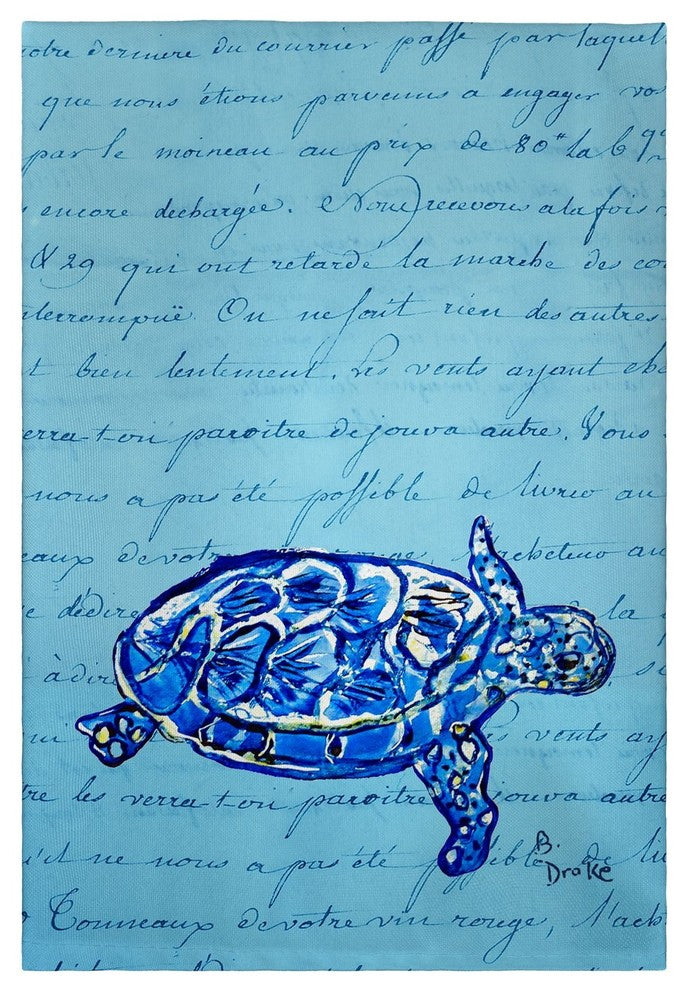 dernière du courrier passé par laquel
que nous étions parvenus a engager vo
par le moineau au prix de 80" la b
encore dechargée. Nous recevons a la fois
& 29 qui ont retardé la marche des co
terrompuë. On ne fait rien des autres
t bien lentement. Les vents ayant ch
erra-t-on paroitre dejouva autre. Vous
nous a pas été possible de livrer au
eaux de votre rouge, l'acheteur au
e dédire la
à dire
vents ay
re les verra-t-on paroitre dejouva autre
il ne nous a pas été possible de li
Tonneaux de votre vin rouge, l'ach
B.
Drake